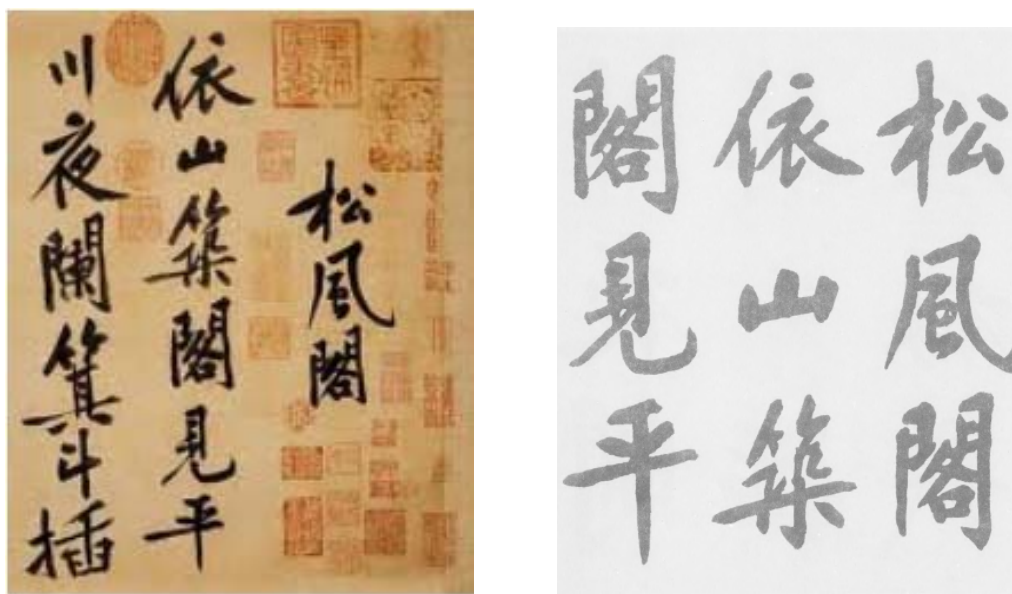 松風閣
依山築閣見平
川夜闌箕斗插
松風閣
依山築
閣見平